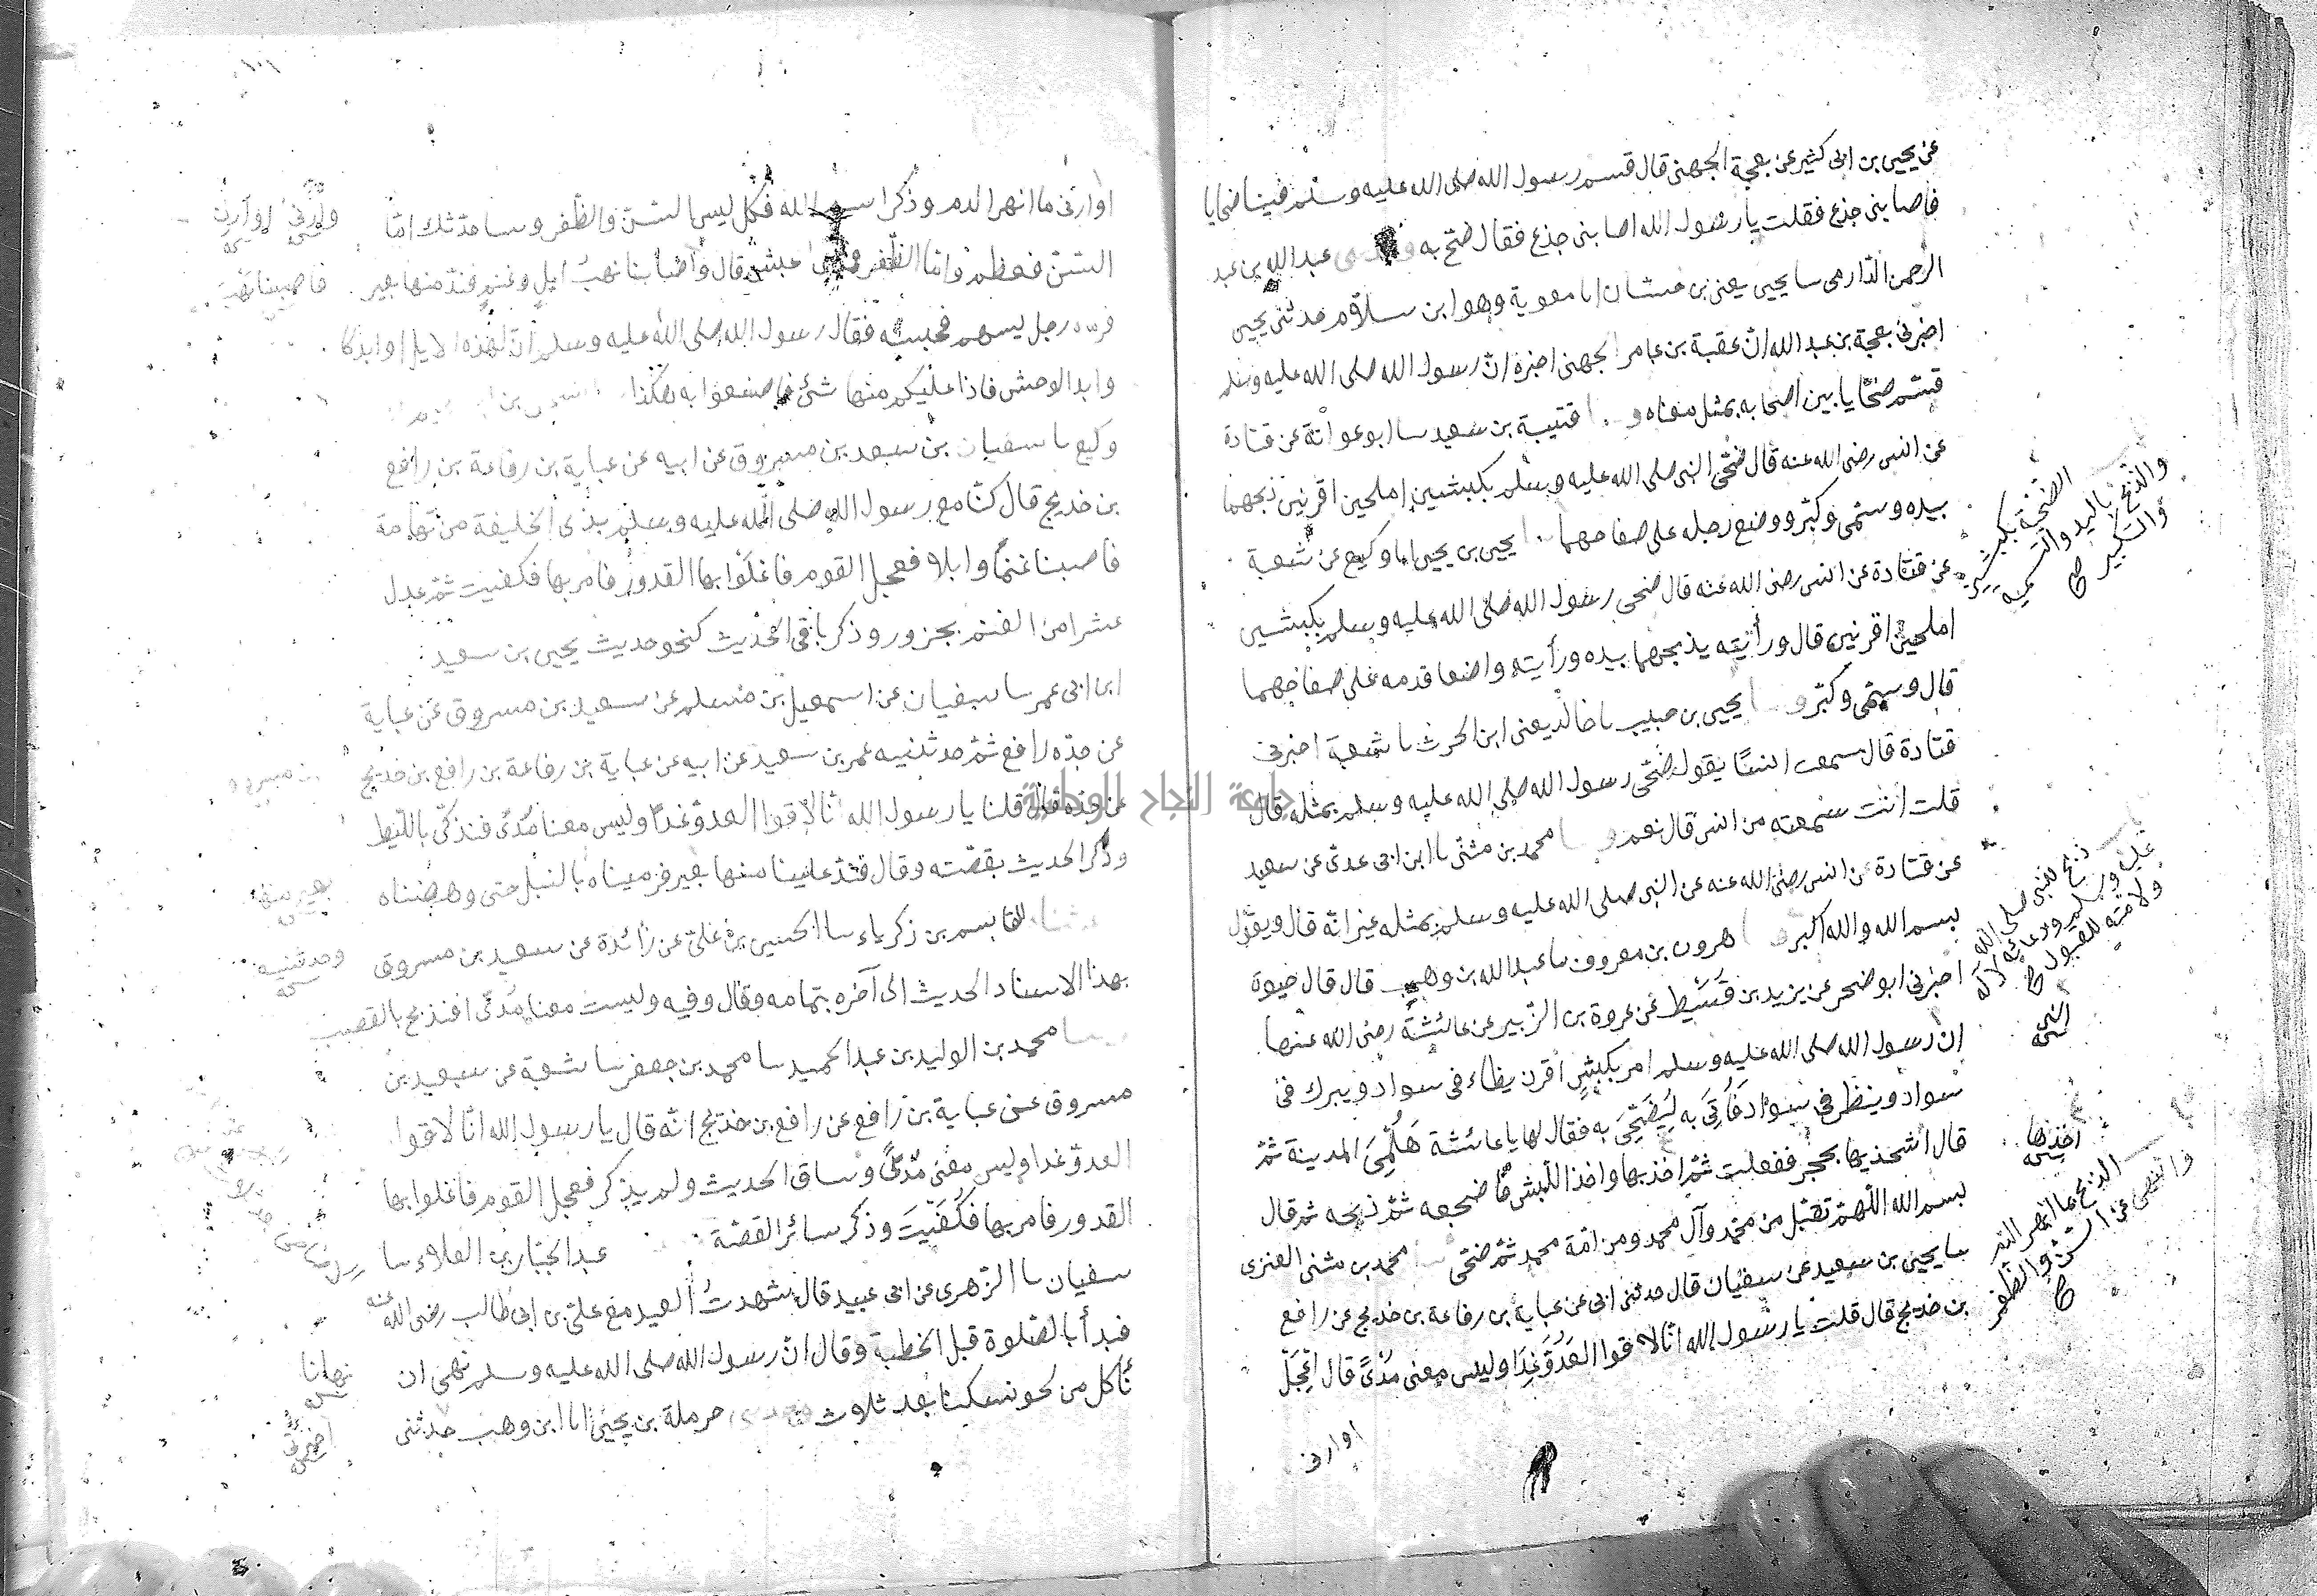 عن يحيى بن ابى كثير عن بعجة الجهنى قال قسم رسول الله صلى الله عليه وسلم فينا ضحايا
فاصابنى جذع فقلت يا رسول الله اصابنى جذع فقال ضح به عبد الله بن عبد
الرحمن الدارمى سا يحيى يعنى بن حسان انا معوية وهو ابن سلام حدثنى يحيى
اخبرنى بعجة بن عبد الله ان عقبة بن عامر الجهنى اخبره ان رسول الله صلى الله عليه وسلم
قسم ضحايا بين اصحابه بمثل معناه قتيبة بن سعيد سا ابو عوانة عن قتادة
عن انس رضى الله عنه قال ضحى النبى صلى الله عليه وسلم بكبشين املحين اقرنين ذبحهما
بيده وسمى وكبر ووضع رجله على صفاحهما يحيى بن يحيى انا وكيع عن شعبة
عن قتادة عن انس رضى الله عنه قال ضحى رسول الله صلى الله عليه وسلم بكبشين
املحين اقرنين قال ورأيته يذبحهما بيده ورأيته واضعا قدمه على صفاحهما
قال وسمى وكبر يحيى بن حبيب نا خالد يعنى ابن الحرث نا شعبة اخبرنى
قتادة قال سمعت انسا يقول ضحى رسول الله صلى الله عليه وسلم بمثله قال
قلت انت سمعته من انس قال نعم محمد بن مثنى نا ابن ابى عدى عن سعيد
عن قتادة عن انس رضى الله عنه عن النبى صلى الله عليه وسلم بمثله غير انه قال ويقول
بسم الله والله اكبر هرون بن معروف سا عبد الله بن وهب قال قال حيوة
اخبرنى ابو صخر عن يزيد بن قسيط عن عروة بن الزبير عن عائشة رضى الله عنها
ان رسول الله صلى الله عليه وسلم امر بكبش اقرن يطاء فى سواد ويبرك فى
سواد وينظر فى سواد فأتى به ليضحى به فقال لها يا عائشة هلمى المدية ثم
قال اشحذيها بحجر ففعلت ثم اخذها واخذ الكبش فاضجعه ثم ذبحه ثم قال
بسم الله اللهم تقبل من محمد وآل محمد ومن امة محمد ثم ضحى محمد بن مثنى العنزى
سا يحيى بن سعيد عن سفيان قال حدثنى ابى عن عباية بن رفاعة بن خديج عن رافع
بن خديج قال قلت يا رسول الله انا لاقوا العدو غدا وليس معنى مدى قال اعجل
اوارنى
الضحية بكبشين
والذبح باليد والتسمية
والتكبير
ذبح النبى صلى الله
عليه وسلم ودعائه لآله
ولامته للقبول
النبى
اخذها
الذبح بما انهر الدم
والنهى عن السن والظفر
اوارنى ما انهر الدم وذكر اسم الله فكل ليس السن والظفر وساحدثك اما
السن فعظم واما الظفر حبشة قال واصابنا نهب ابل وغنم فند منها بعير
رجل بسهم فحبسه فقال رسول الله صلى الله عليه وسلم ان لهذه الابل اوابد كا
وابد الوحش فاذا غلبكم منها شئ فاصنعوا به هكذا
وكيع نا سفيان بن سعيد بن مسروق عن ابيه عن عباية بن رفاعة بن رافع
بن خديج قال كنا مع رسول الله صلى الله عليه وسلم بذى الحليفة من تهامة
فاصبنا غنما وابلا فعجل القوم فاغلوا بها القدور فامر بها فكفيت ثم عدل
عشرا من الغنم بجزور وذكر باقى الحديث كنحو حديث يحيى بن سعيد
ابن ابى عمر سا سفيان عن اسمعيل بن مسلم عن سعيد بن مسروق عن عباية
عن جده رافع ثم حدثنيه عمر بن سعيد عن ابيه عن عباية بن رفاعة بن رافع بن خديج
عن جده قال قلنا يا رسول الله انا لاقوا العدو غدا وليس معنا مدى فنذكى بالليط
وذكر الحديث بقصته وقال فند علينا منها بعير فرميناه بالنبل حتى وهصناه
القاسم بن زكرياء سا الحسين بن على عن زائدة عن سعيد بن مسروق
بهذا الاسناد الحديث الى آخره بتمامه وقال وفيه وليست معنا مدى افنذبح بالقصب
محمد بن الوليد بن عبد الحميد سا محمد بن جعفر سا شعبة عن سعيد بن
مسروق عن عباية بن رافع عن رافع بن خديج انه قال يا رسول الله انا لاقوا
العدو غدا وليس معنى مدى وساق الحديث ولم يذكر فعجل القوم فاغلوا بها
القدور فامر بها فكفيت وذكر سائر القصة عبد الجبار بن العلاء سا
سفيان نا الزهرى عن ابى عبيد قال شهدت العيد مع على بن ابى طالب رضى الله عنه
فبدأ بالصلوة قبل الخطبة وقال ان رسول الله صلى الله عليه وسلم نهى ان
نأكل من لحو نسكنا بعد ثلاث حرملة بن يحيى انا ابن وهب حدثنى
فاصبنا نهب
وحدثنيه
نهانا
اخبرنى
جامعة النجاح الوطنية